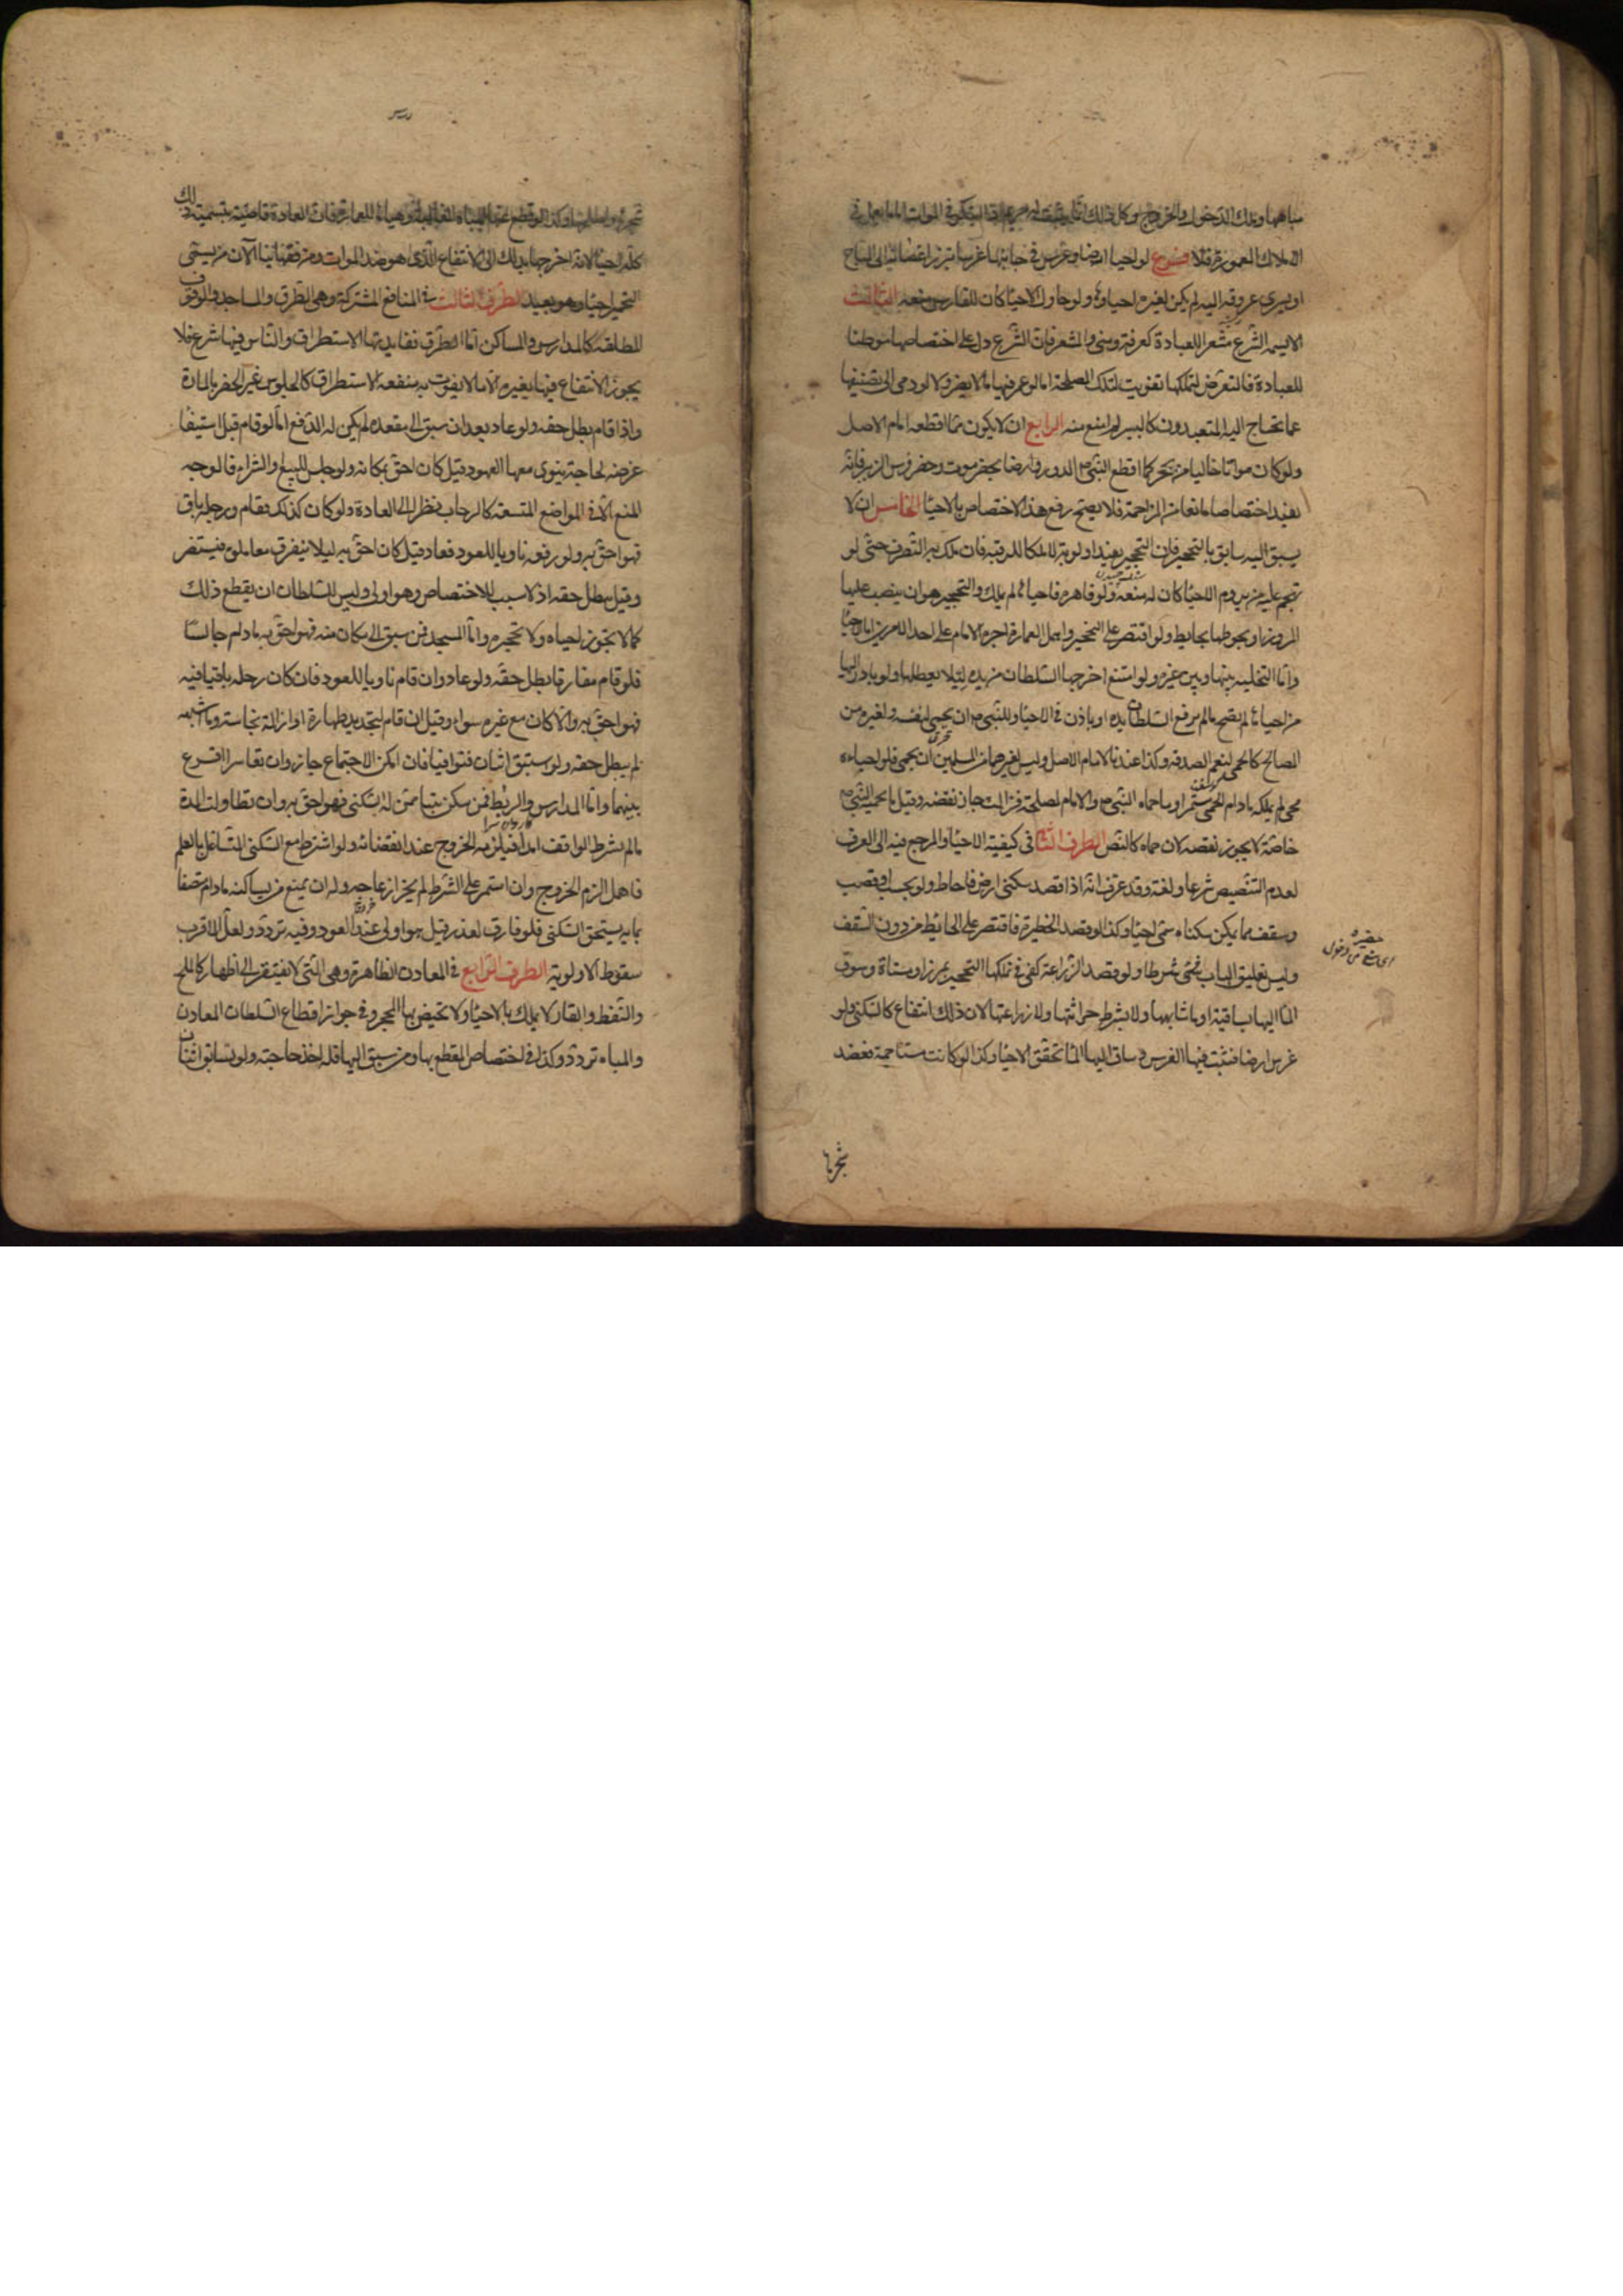 مباهها وملك الدخول والخروج وكان ذلك انما يثبت له حريم اذا ابتكر في الموات اما ما يعمل في
الاملاك المعمورة فلا فروع لو احيا ارضا وغرس في جانبها غرسا تبرز اغصانه الى المباح
او يسرى عروقه اليه لم يكن لغيره احياوه ولو حاول الاحيا كان للغارس منعه الثالث
الا يسمه الشرع مشعرا للعبادة كعرفة ومنى والمشعر فان الشرع دل على اختصاصها موطنا
للعبادة فالتعرض لتملكها تفويت لتلك المصلحة اما لو عمر فيها ما لا يضر ولا يودى الى تضييقها
عما تحتاج اليه المتعبدون كاليسير لم امنع منه الرابع ان لا يكون مما اقطعه امام الاصل
ولو كان مواتا خاليا من تحجر كما اقطع النبي ص الدور وارضا بحضرموت وحضر فرس الزبير فانه
يفيد اختصاصا مانعا من المزاحمة فلا يصح رفع هذا الاختصاص بالاحيا الخامس ان لا
يسبق اليه سابق بالتحجير فان التحجير يفيد اولوية لا ملكا للرقبة فان ملك به التصرف حتى لو
تهجم عليه من يروم الاحيا كان له منعه ولو قاهره فاحياها لم يملك والتحجير هو ان ينصب عليها
المروز او يحوطها بحايط ولو اقتصر على التحجير واهمل العمارة اجبره الامام على احد الامرين اما الاحيا
واما التخلية بينها وبين غيره ولو امتنع اخرجها السلطان من يده لئلا يعطلها ولو بادر اليها
من احياها لم يصح ما لم يرفع السلطان يده او ياذن في الاحيا وللنبي ص ان يحمي لنفسه ولغيره من
المصالح كالحمى لنعم الصدقة وكذا عندنا لامام الاصل وليس لغيرهما من المسلمين ان يحمي فلو احياه
محي لم يملكه ما دام الحمى مستمرا وما حماه النبي ص والامام لمصلحة فزالت جاز نقضه وقيل ما يحميه النبي ص
خاصة لا يجوز نقضه لان حماه كالنص الطرف الثاني في كيفية الاحيا والمرجع فيه الى العرف
لعدم التنصيص شرعا ولغة وقد عرف انه اذا قصد سكنى ارض فاحاط ولو بخشب او قصب
وسقف مما يمكن سكناه سمى احيا وكذا لو قصد الحظيرة فاقتصر على الحائط من دون السقف
وليس تعليق الباب شرطا ولو قصد الزراعة كفى في تملكها التحجير بمرز او مسناة وسوق
الما اليها بساقية او ما شابهها ولا يشترط حراثتها ولا زراعتها لان ذلك انتفاع كالسكنى ولو
غرس ارضا فنبت فيها الغرس وساق اليها الما تحقق الاحيا وكذا لو كانت مستاجمة فعضد
شجرها
شجرها واصلحها وكذا لو قطع عنها المياه الغالبة وهياها للعمارة فان العادة قاضية بتسمية ذلك
كله احيا لانه اخرجها بذلك الى الانتفاع الذى هو ضد الموات ومن فقهائنا الآن من يسمى
التحجير احيا وهو بعيد الطرف الثالث في المنافع المشتركة وهى الطرق والمساجد والوقوف
المطلقة كالمدارس والمساكن اما الطرق ففايدتها الاستطراق والناس فيها شرع فلا
يجوز الانتفاع فيها بغيره الا ما لا يفوت به منفعة الاستطراق كالجلوس غير المضر بالمارة
واذا قام بطل حقه ولو عاد بعد ان سبق الى مقعده لم يكن له الدفع اما لو قام قبل استيفا
غرضه لحاجة ينوى معها العود قيل كان احق بمكانه ولو جلس للبيع والشراء فالوجه
المنع الا في المواضع المتسعة كالرحاب نظرا الى العادة ولو كان كذلك فقام ورحله باق
فهو احق به ولو رفعه ناويا للعود فعاد قيل كان احق به ليلا يتفرق معاملوه فيستضر
وقيل يبطل حقه اذ لا سبب للاختصاص وهو اولى وليس للسلطان ان يقطع ذلك
كما لا يجوز احياه ولا تحجيره واما المسجد فمن سبق الى مكان منه فهو احق به ما دام جالسا
فلو قام مفارقا بطل حقه ولو عاد وان قام ناويا للعود فان كان رحله باقيا فيه
فهو احق به والا كان مع غيره سواء وقيل ان قام لتجديد طهارة او ازالة نجاسة وما اشبهه
لم يبطل حقه ولو استبق اثنان فتوافيا فان امكن الاجتماع جاز وان تعاسرا اقرع
بينهما واما المدارس والربط فمن سكن بيتا ممن له السكنى فهو احق به وان تطاولت المدة
ما لم يشترط الواقف امدا فيلزمه الخروج عند انقضائه ولو اشترط مع السكنى التشاغل بالعلم
فاهمل الزم الخروج وان استمر على الشرط لم يجز ازعاجه وله ان يمنع من يساكنه ما دام متصفا
بما به يستحق السكنى فلو فارق لعذر قيل هو اولى عند العود وفيه تردد ولعل الاقرب
سقوط الاولوية الطرف الرابع في المعادن الظاهرة وهي التي لا يفتقر الى اظهار كالملح
والنفط والقار لا يملك بالاحيا ولا يختص بها المحجر وفي جواز اقطاع السلطان المعادن
والمياه تردد وكذا في اختصاص المقطع بها ومن سبق اليها فله اخذ حاجته ولو تسابق اثنان